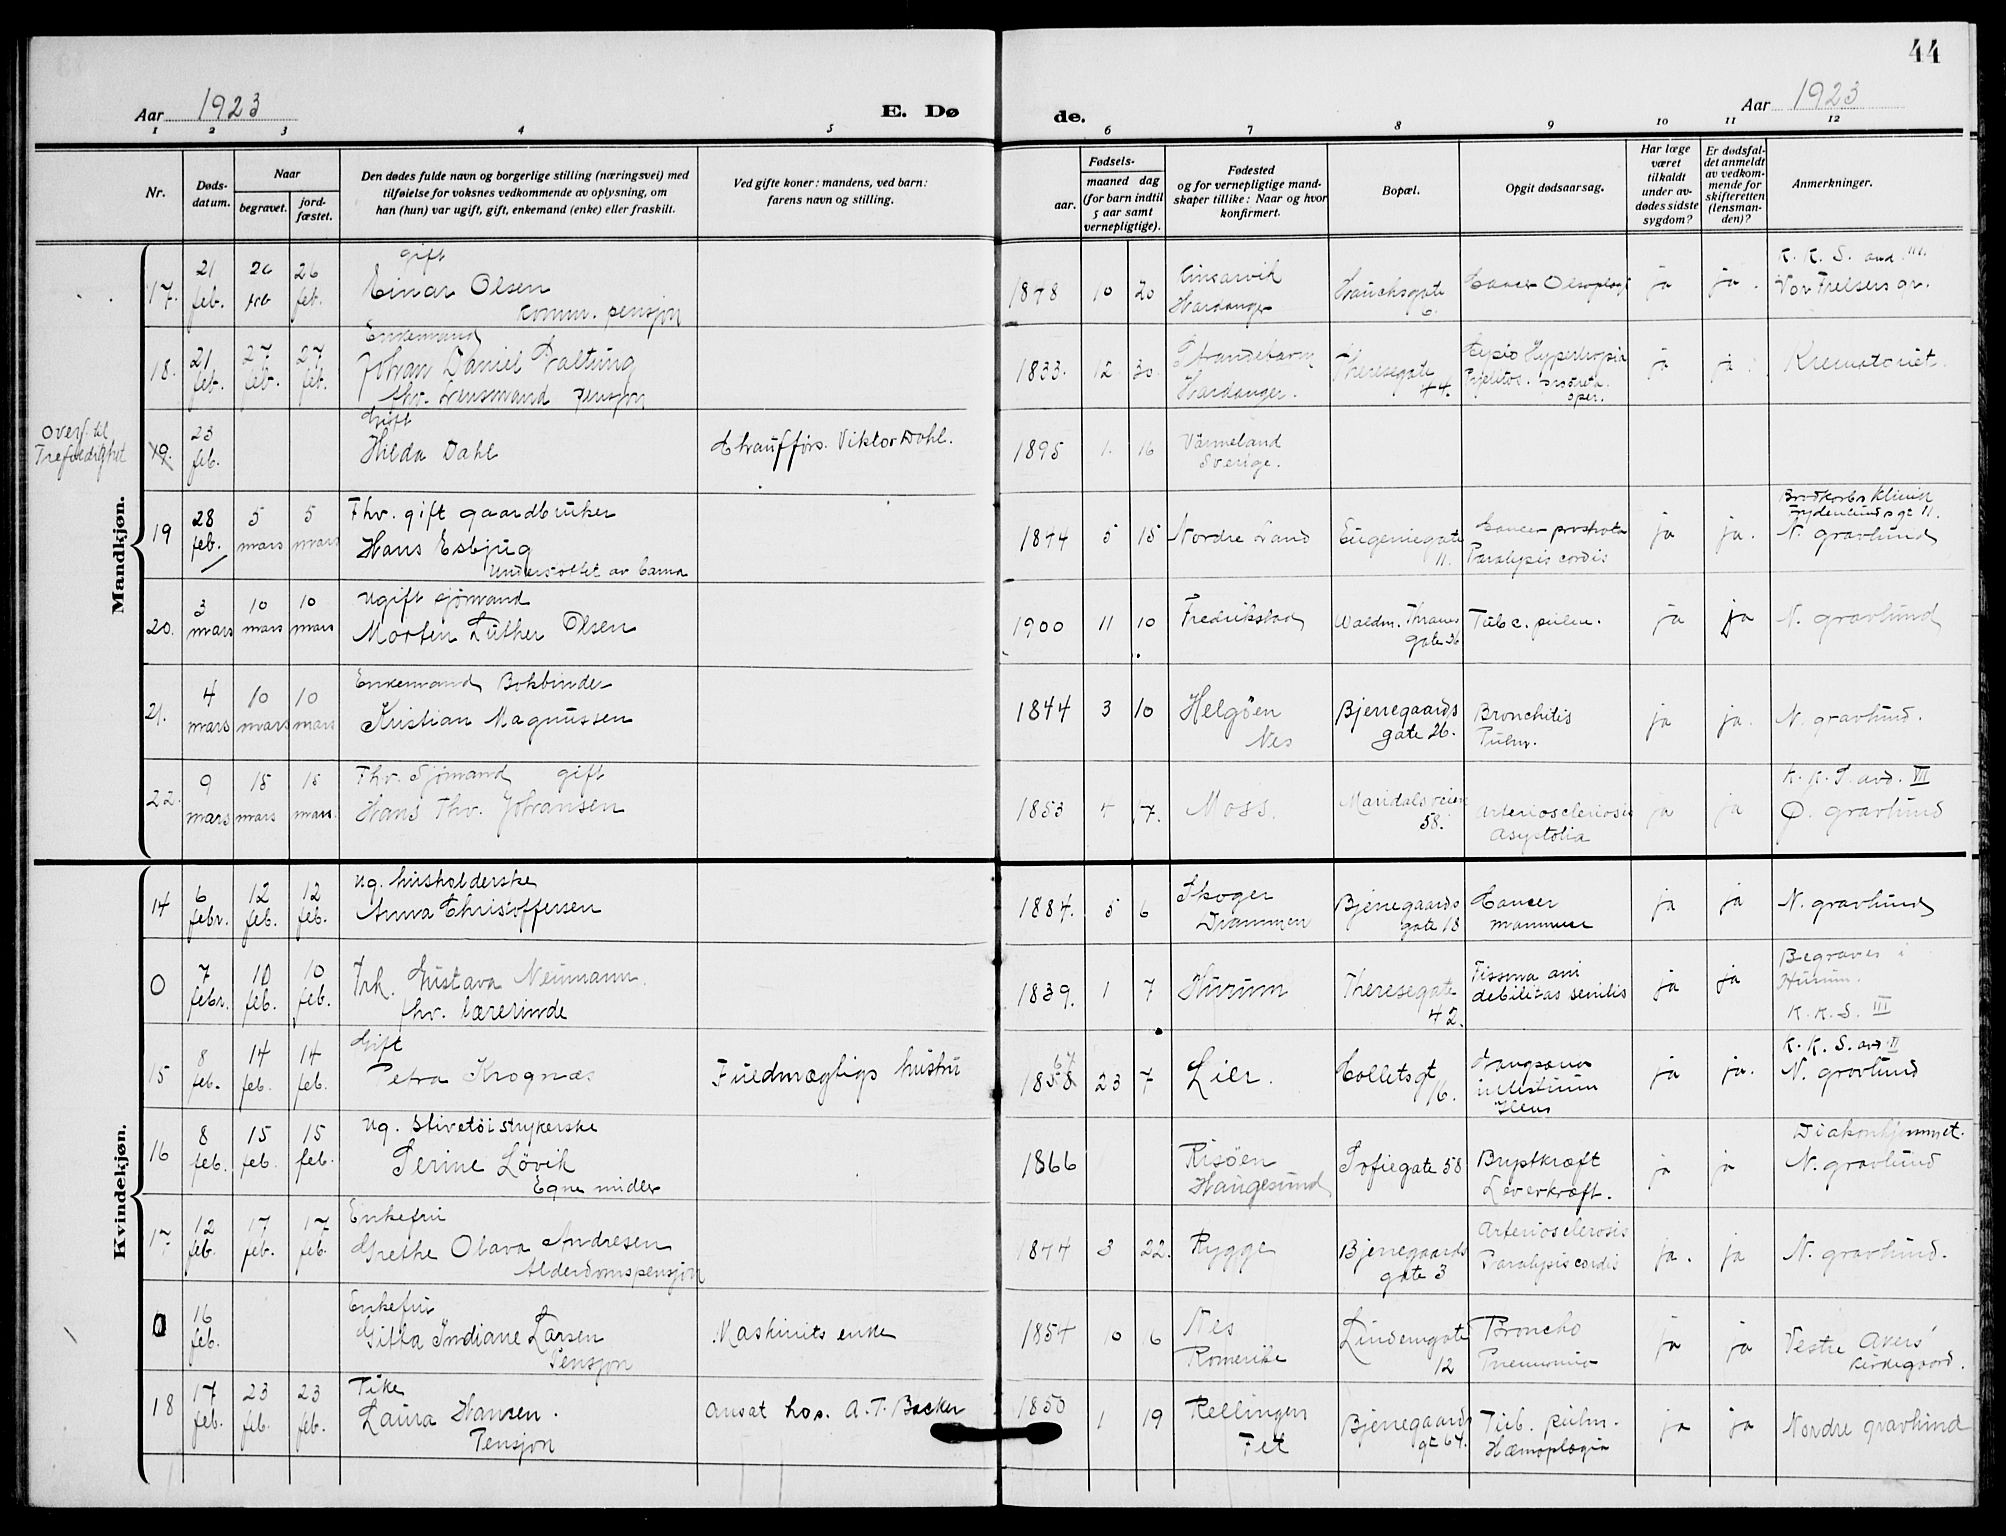 44
Aar 1923
E. Dø
de.
Aar 1923
1 2 3 4 5 6 7 8 9 10 11 12
Nr.
Døds-
datum.
Naar
begravet.
jord-
fæstet.
Den dødes fulde navn og borgerlige stilling (næringsvei) med
tilføielse for voksnes vedkommende av oplysning, om
han (hun) var ugift, gift, enkemand (enke) eller fraskilt.
Ved gifte koner: mandens, ved barn:
farens navn og stilling.
Fødsels-
aar.
maaned dag
(for barn indtil
5 aar samt
vernepligtige).
Fødested
og for vernepligtige mand-
skaper tillike: Naar og hvor
konfirmert.
Bopæl.
Opgit dødsaarsag.
Har læge
været
tilkaldt
under av-
dødes sidste
sygdom?
Er dødsfal-
det anmeldt
av vedkom-
mende for
skifteretten
(lensman-
den)?
Anmerkninger.
Mandkjøn.
17. 21 feb. 26 feb 26 feb.
gift
Einar Olsen
komm. pensjon
1878 10 20
Kinsarvik
Hardanger
Hauchsgate
6.
Cancer
ja ja.
K. K. S. avd. III.
Vor Frelsers gr.
18. 21 feb. 27 feb. 27 feb.
Enkemand
Johan Daniel Galtung
fhv. Lensmand pensjon
1833. 12 30
Strandebarm
Hardanger.
Theresegate
44.
prostata
oper.
ja ja
Krematoriet.
overf. til
Trefoldighet
19. 23 feb.
Gift
Hilda Dahl
Chaufførs. Viktor Dahl.
1895 1. 16
Värmeland
Sverige.
19 28 feb. 5 mars 5 mars
Fhv. gift gaardbruker
Hans Esbjug
Understøttet av barna
1844 5 15
Nordre Land
Eugeniegate
11.
Cancer prostata
Paralysis cordis
ja ja.
Klinik
Frydenlundsgt 11.
N. gravlund
20. 3 mars 10 mars 10 mars
Ugift sjømand
Morten Luther Olsen
1900 11 10
Fredrikstad
Waldm. Thranes
gate 26
Tub c. pulm.
ja ja
N. gravlund
21. 4 mars 10 mars 10 mars
Enkemand Bokbinder
Kristian Magnussen
1844 3 10
Helgøen
Nes
Bjerregaards
gate 26.
Bronchitis
Pulm.
ja ja.
N. gravlund.
22. 9 mars 15 mars 15 mars.
Fhv. Sjømand gift
Hans Thv. Johansen
1853 4 17.
Moss.
Maridalsveien
58.
Arteriosclerosis
Asystolia
ja ja
K. K. S. avd. VII
Ø. gravlund
Kvindekjøn.
14 6 febr. 12 feb. 12 feb.
ug. husholderske
Anna Christoffersen
1884. 5 6
Skoger
Drammen
Bjerregaards
gate 18
Cancer
mammae
ja ja
N. gravlund
0 7 febr. 10 feb. 10 feb.
Frk. Gustava Neumann.
fhv. lærerinde
1839. 1 7
Hurum
Theresegate
42.
Fissura ani
debilitas senilis
ja ja
Begraves i
Hurum.
K. K. S. III
15 8 feb. 14 feb. 14 feb.
Gift
Petra Krognæs
Fuldmægtigs hustru
1858 23 7
Lier.
Colletsgt
16.
Gangræna
intestinum
Ileus
ja ja.
K. K. S. avd. II
N. gravlund
16 8 feb. 15 feb. 15 feb.
ug. Stivetøistrykerske
Serine Løvik
Egne midler
1866
Risøen
Haugesund
Sofiegate 58
Brystkræft
Leverkræft.
ja ja
Diakonhjemmet.
N. gravlund
17 12 feb. 17 feb. 17 feb.
Enkefru
Grethe Olava Andresen
Alderdomspensjon
1844 3 22.
Rygge
Bjerregaards
gate 3
Arteriosclerosis
Paralysis cordis
ja. ja
N. gravlund.
0 16 feb.
Enkefru
Gilla Indiane Larsen
Pensjon
Maskinists enke
1854 10 6
Nes
Romerike
Lindemgate
12
Broncho
Pneumonia
ja ja
Vestre Akers
kirkegaard.
18 17 feb. 23 feb. 23 feb.
Pike
Laura Hansen.
Pensjon
Ansat hos. A. T. Backer
1850 1 19
Rellingen
Fet
Bjerregaards
gt 64.
Tub. pulm.
Hæmoplægia
ja ja
Nordre gravlund